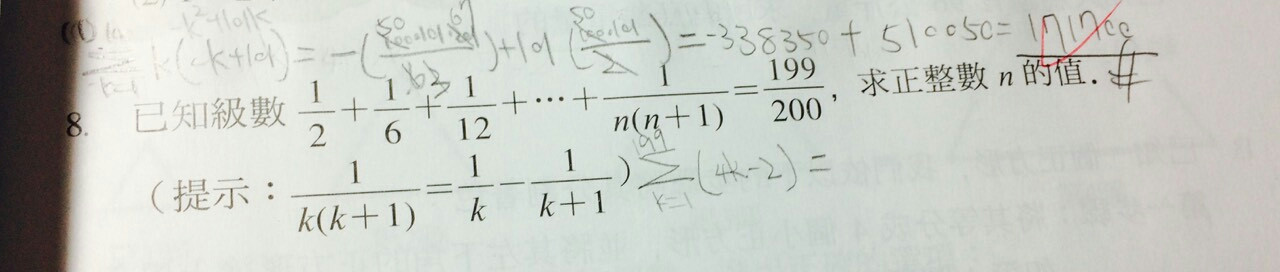 -k²+101k
Σ k(-k+101) = -(100·101·201/6)+101(100·101/2) = -338350 + 510050 = 171700
8. 已知級數 1/2 + 1/6 + 1/12 + ⋯ + 1/n(n+1) = 199/200, 求正整數 n 的值. #
(提示: 1/k(k+1) = 1/k - 1/k+1) Σ_{k=1}^{199} (4k-2) =